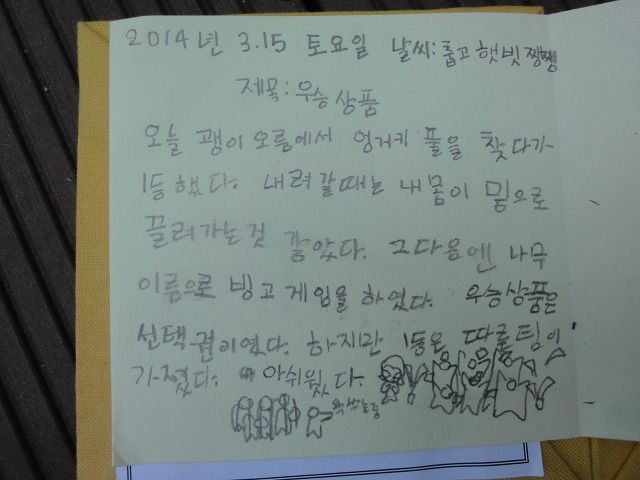 2014년 3.15 토요일 날씨:춥고햇빗쨍쨍
제목:우승상품
오늘 괭이오름에서 엉거키 풀을 찾다가
1등했다. 내려갈때는 내몸이 밑으로
끌려가는것 같았다. 그다음엔 나무
이름으로 빙고게임을 하였다. 우승상품은
선택권이였다. 하지만 1등은 따른팀이
가졌다. 아쉬웠다.